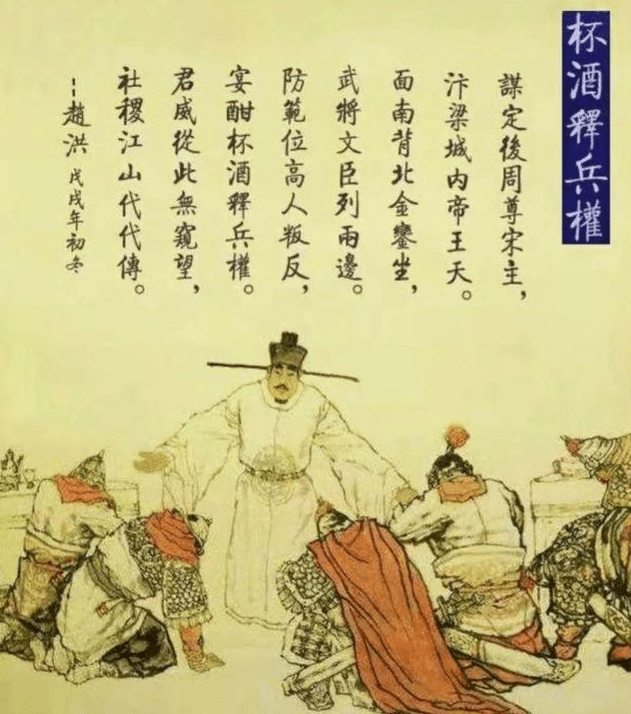 杯酒釋兵權
謀定後周尊宋主，
汴梁城内帝王天。
面南背北金鑾坐，
武將文臣列兩邊。
防範位高人叛反，
宴酣杯酒釋兵權。
君威從此無窺望，
社稷江山代代傳。
--趙洪 戊戌年初冬